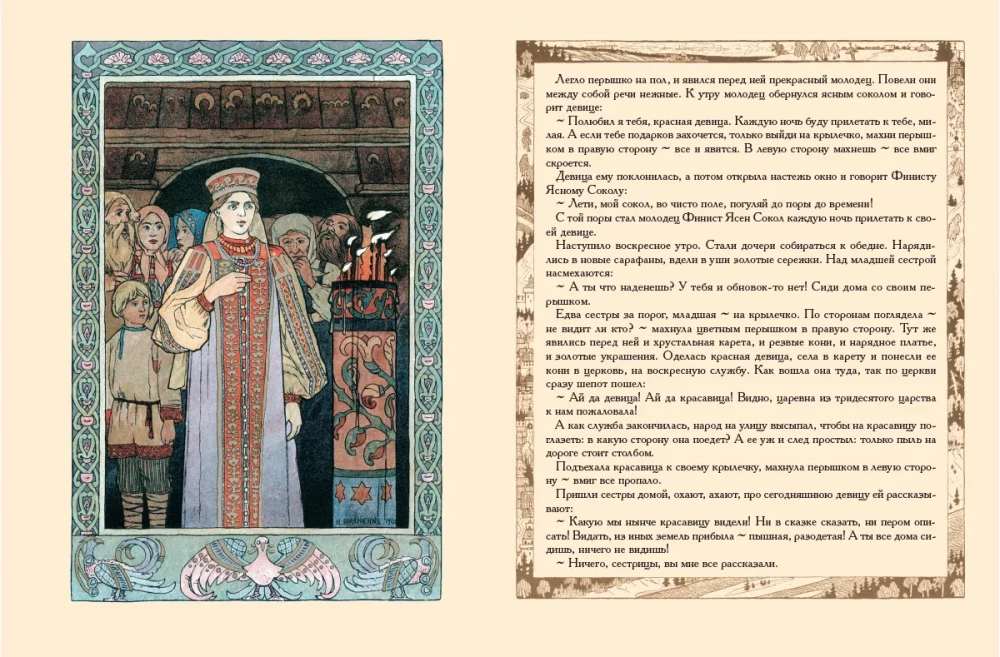 И. БИЛИБИНЪ 1900
Легло перышко на пол, и явился перед ней прекрасный молодец. Повели они
между собой речи нежные. К утру молодец обернулся ясным соколом и гово-
рит девице:
~ Полюбил я тебя, красная девица. Каждую ночь буду прилетать к тебе, ми-
лая. А если тебе подарков захочется, только выйди на крылечко, махни перыш-
ком в правую сторону ~ все и явится. В левую сторону махнешь ~ все вмиг
скроется.
Девица ему поклонилась, а потом открыла настежь окно и говорит Финисту
Ясному Соколу:
~ Лети, мой сокол, во чисто поле, погуляй до поры до времени!
С той поры стал молодец Финист Ясен Сокол каждую ночь прилетать к сво-
ей девице.
Наступило воскресное утро. Стали дочери собираться к обедне. Наряди-
лись в новые сарафаны, вдели в уши золотые сережки. Над младшей сестрой
насмехаются:
~ А ты что наденешь? У тебя и обновок-то нет! Сиди дома со своим пе-
рышком.
Едва сестры за порог, младшая ~ на крылечко. По сторонам поглядела ~
не видит ли кто? ~ махнула цветным перышком в правую сторону. Тут же
явились перед ней и хрустальная карета, и резвые кони, и нарядное платье,
и золотые украшения. Оделась красная девица, села в карету и понесли ее
кони в церковь, на воскресную службу. Как вошла она туда, так по церкви
сразу шепот пошел:
~ Ай да девица! Ай да красавица! Видно, царевна из тридесятого царства
к нам пожаловала!
А как служба закончилась, народ на улицу высыпал, чтобы на красавицу по-
глазеть: в какую сторону она поедет? А ее уж и след простыл: только пыль на
дороге стоит столбом.
Подъехала красавица к своему крылечку, махнула перышком в левую сторо-
ну ~ вмиг все пропало.
Пришли сестры домой, охают, ахают, про сегодняшнюю девицу ей рассказы-
вают:
~ Какую мы нынче красавицу видели! Ни в сказке сказать, ни пером опи-
сать! Видать, из иных земель прибыла ~ пышная, разодетая! А ты все дома си-
дишь, ничего не видишь!
~ Ничего, сестрицы, вы мне все рассказали.